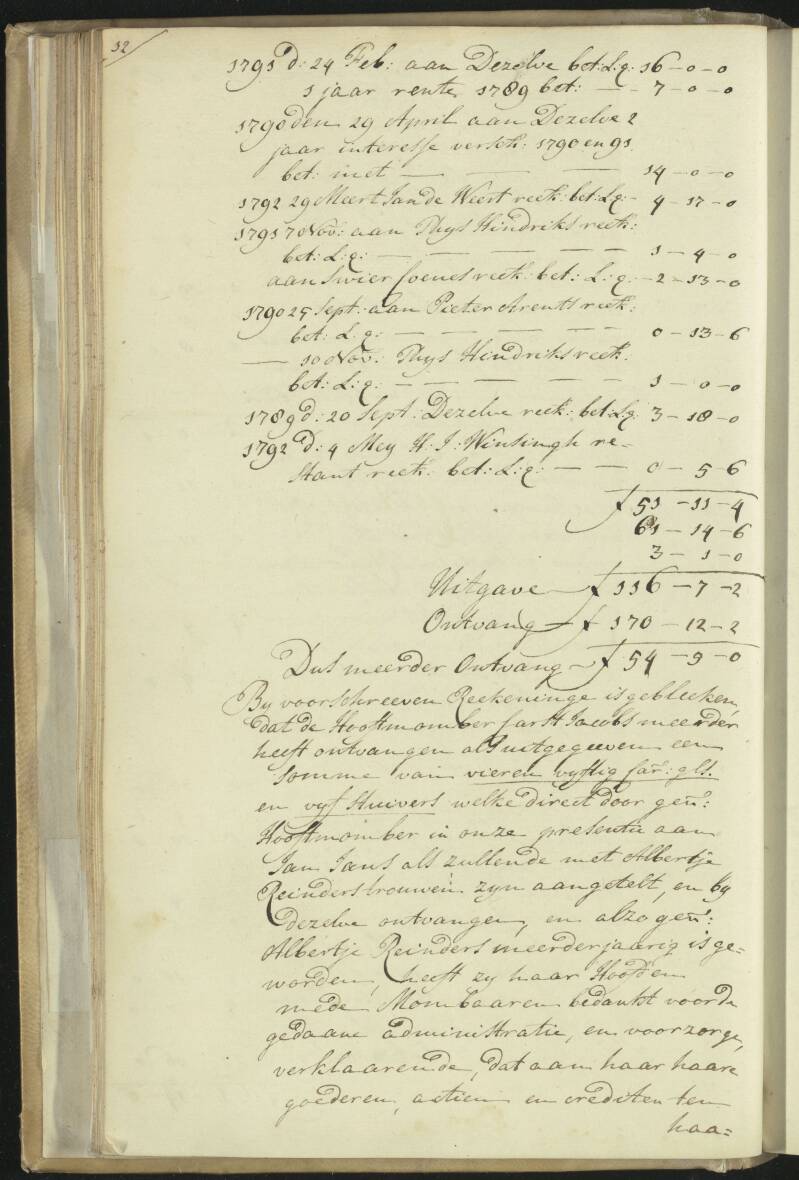 32
1791 d: 24 Feb: aan Dezelve bet: L: q: 16-0-0
1 jaar rente 1789 bet: - - 7-0-0
1790 den 29 April aan Dezelve 2
jaar interesse versch: 1790 en 91.
bet: met - - - 14-0-0
1792 29 Meert Jan de Weert reek: bet: L: q: - 4-17-0
1791 7 Nov: aan Thys Hindriks reek:
bet: L: q: - - - - 1-4-0
aan Swier Coenes reek: bet: L: q: - 2-13-0
1790 25 Sept: aan Pieter Arents reek:
bet: L: q: - - - - 0-13-6
- 10 Nov: Thys Hindriks reek:
bet: L: q: - - - - 1-0-0
1789 d: 20 Sept: Dezelve reek: bet: L: q: 3-18-0
1792 d: 4 Mey H: J: Winsingh re=
stant reek: bet: L: q: - - 0-5-6
f 51-11-4
61-14-6
3-1-0
Uitgave - f 116-7-2
Ontvang - f 170-12-2
Dus meerder Ontvang - f 54-5-0
By voorschreeven Reekeninge is gebleeken,
dat de Hooftmomber Jan H Jacobs meerder
heeft ontvangen als uitgegeeven een
somme van vier en vyftig car: gls.
en vyf stuivers welke direct door gem:
Hooftmomber in onze presentie aan
Jan Jans als zullende met Albertje
Reinders trouwen zyn aangetelt, en by
dezelve ontvangen, en alzo gem:
Albertje Reinders meerderjaarig is ge=
worden, heeft zy haar Hooft en
mede Mombaaren bedankt voor de
gedaane administratie, en voorzorge,
verklaarende, dat aan haar haare
goederen, actien en crediten ten
haa=